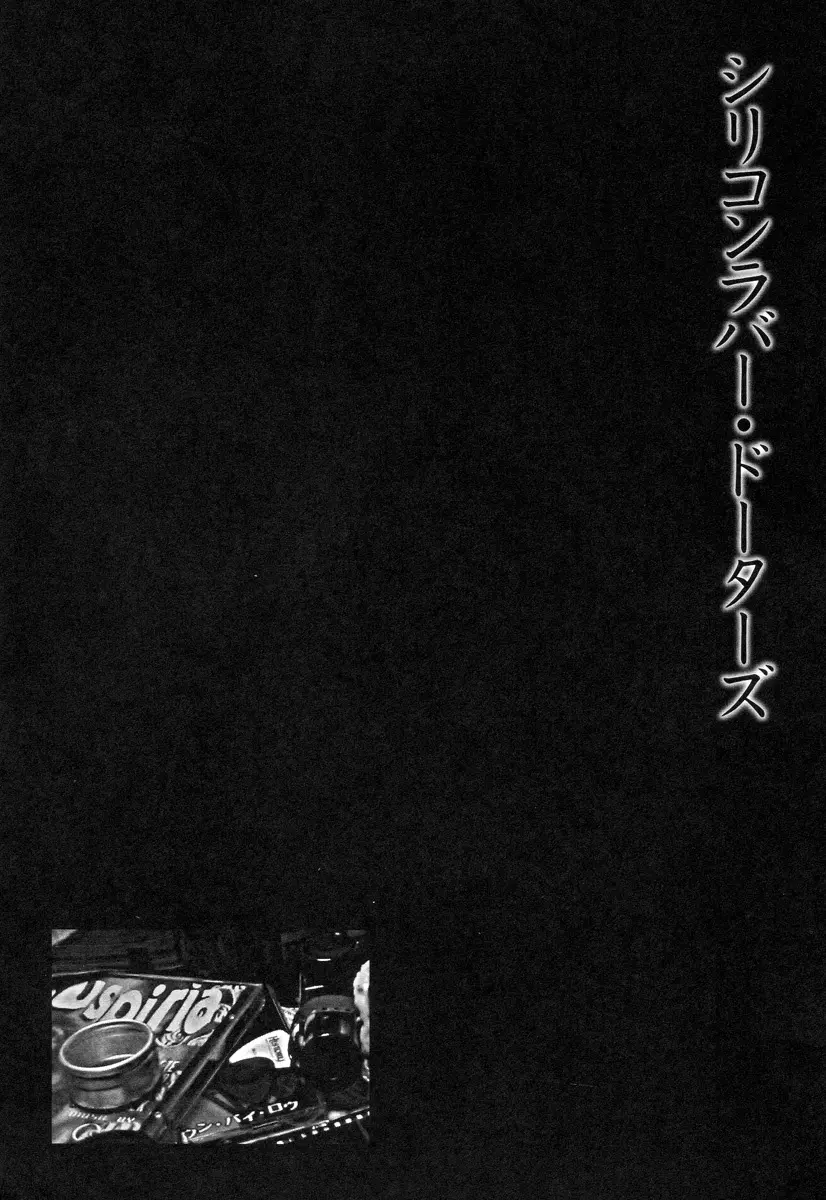 シリコンラバー・ドーターズ
uspiria
ウン・バイ・ロウ